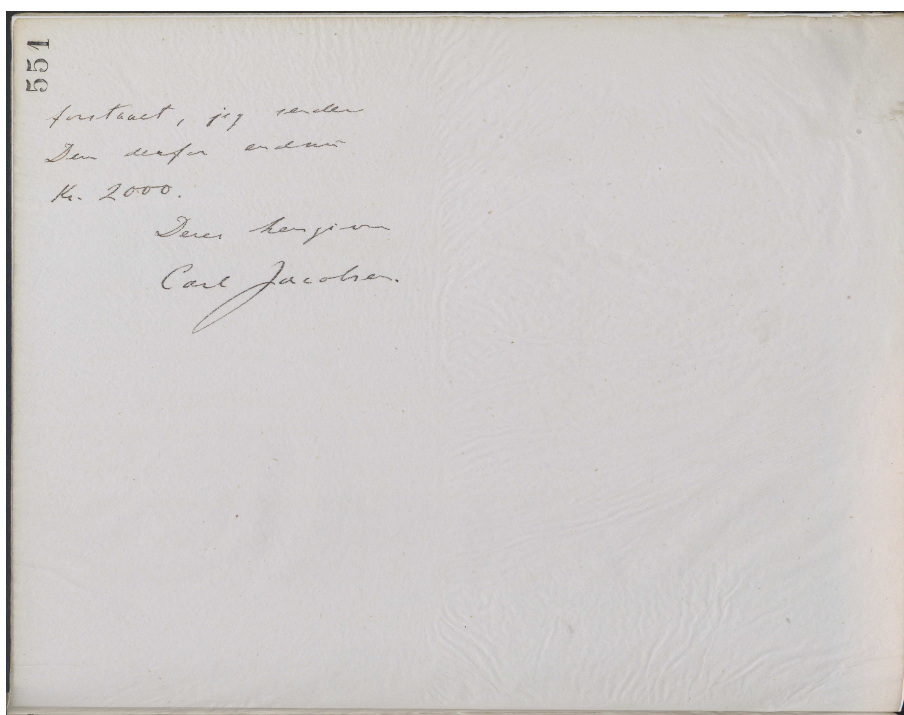 551
forstaaet, jeg sender
Dem derfor endnu
Kr. 2000.
Deres hengivne
Carl Jacobsen.